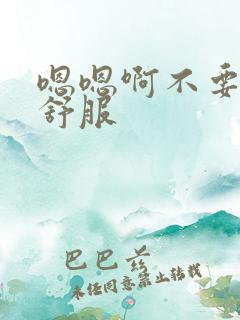 嗯嗯啊不要
舒服
巴巴爷
未经同意禁止转载